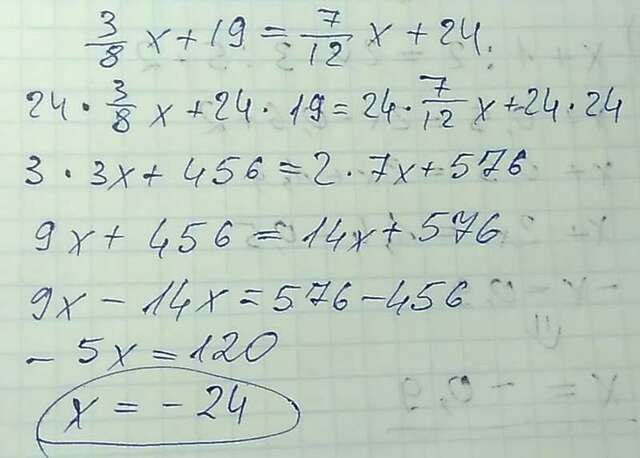 3/8 x + 19 = 7/12 x + 24.
24 · 3/8 x + 24 · 19 = 24 · 7/12 x + 24 · 24
3 · 3x + 456 = 2 · 7x + 576
9x + 456 = 14x + 576
9x - 14x = 576 - 456
- 5x = 120
x = - 24